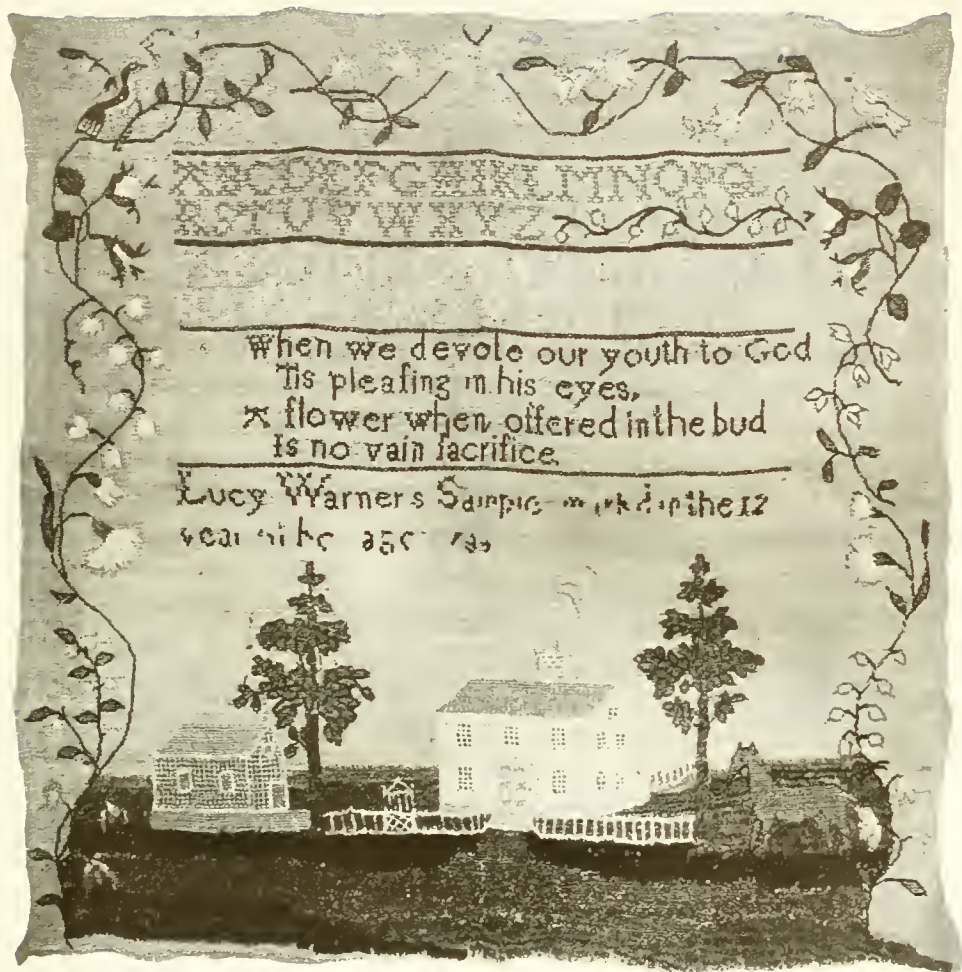 ABCDEFGHIKLMNOPQ
RSTUVWXYZ
When we devote our youth to God
Tis pleaſing in his eyes,
A flower when offered in the bud
Is no vain ſacrifice
Lucy Warners Sampler in the 12
year age